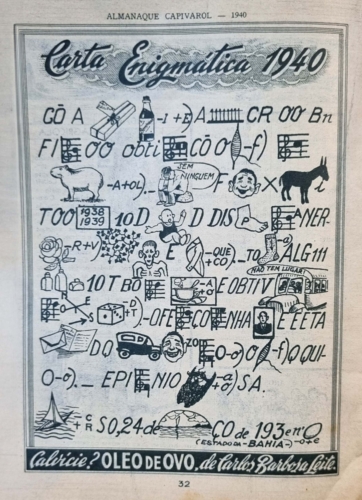 ALMANAQUE CAPIVAROL — 1940
Carta Enigmática 1940
CÔ A -i +E) A CR OO Bn
FI OO obti CÔ O -f)
-A+OL). SEM NINGUEM F X
TOO 1938 1939 10 D D DIS ANER-
-R+V) E -QUE +CO). -TO -a) ALG 111
NÃO TEM LUGAR!
10 T BÔ -A +O E OBTIV
R E S -D +T). -OFE CO NHA E E ETA
DO ZOO E O-o) O -f) Q QUI-
O-o). EPI NIO +ã) SA.
+ C R SO, 24 de ÇO de 193 en O
(ESTADO DA -BAHIA-) -o+e
Calvicie? OLEO DE OVO, de Carlos Barbosa Leite.
32